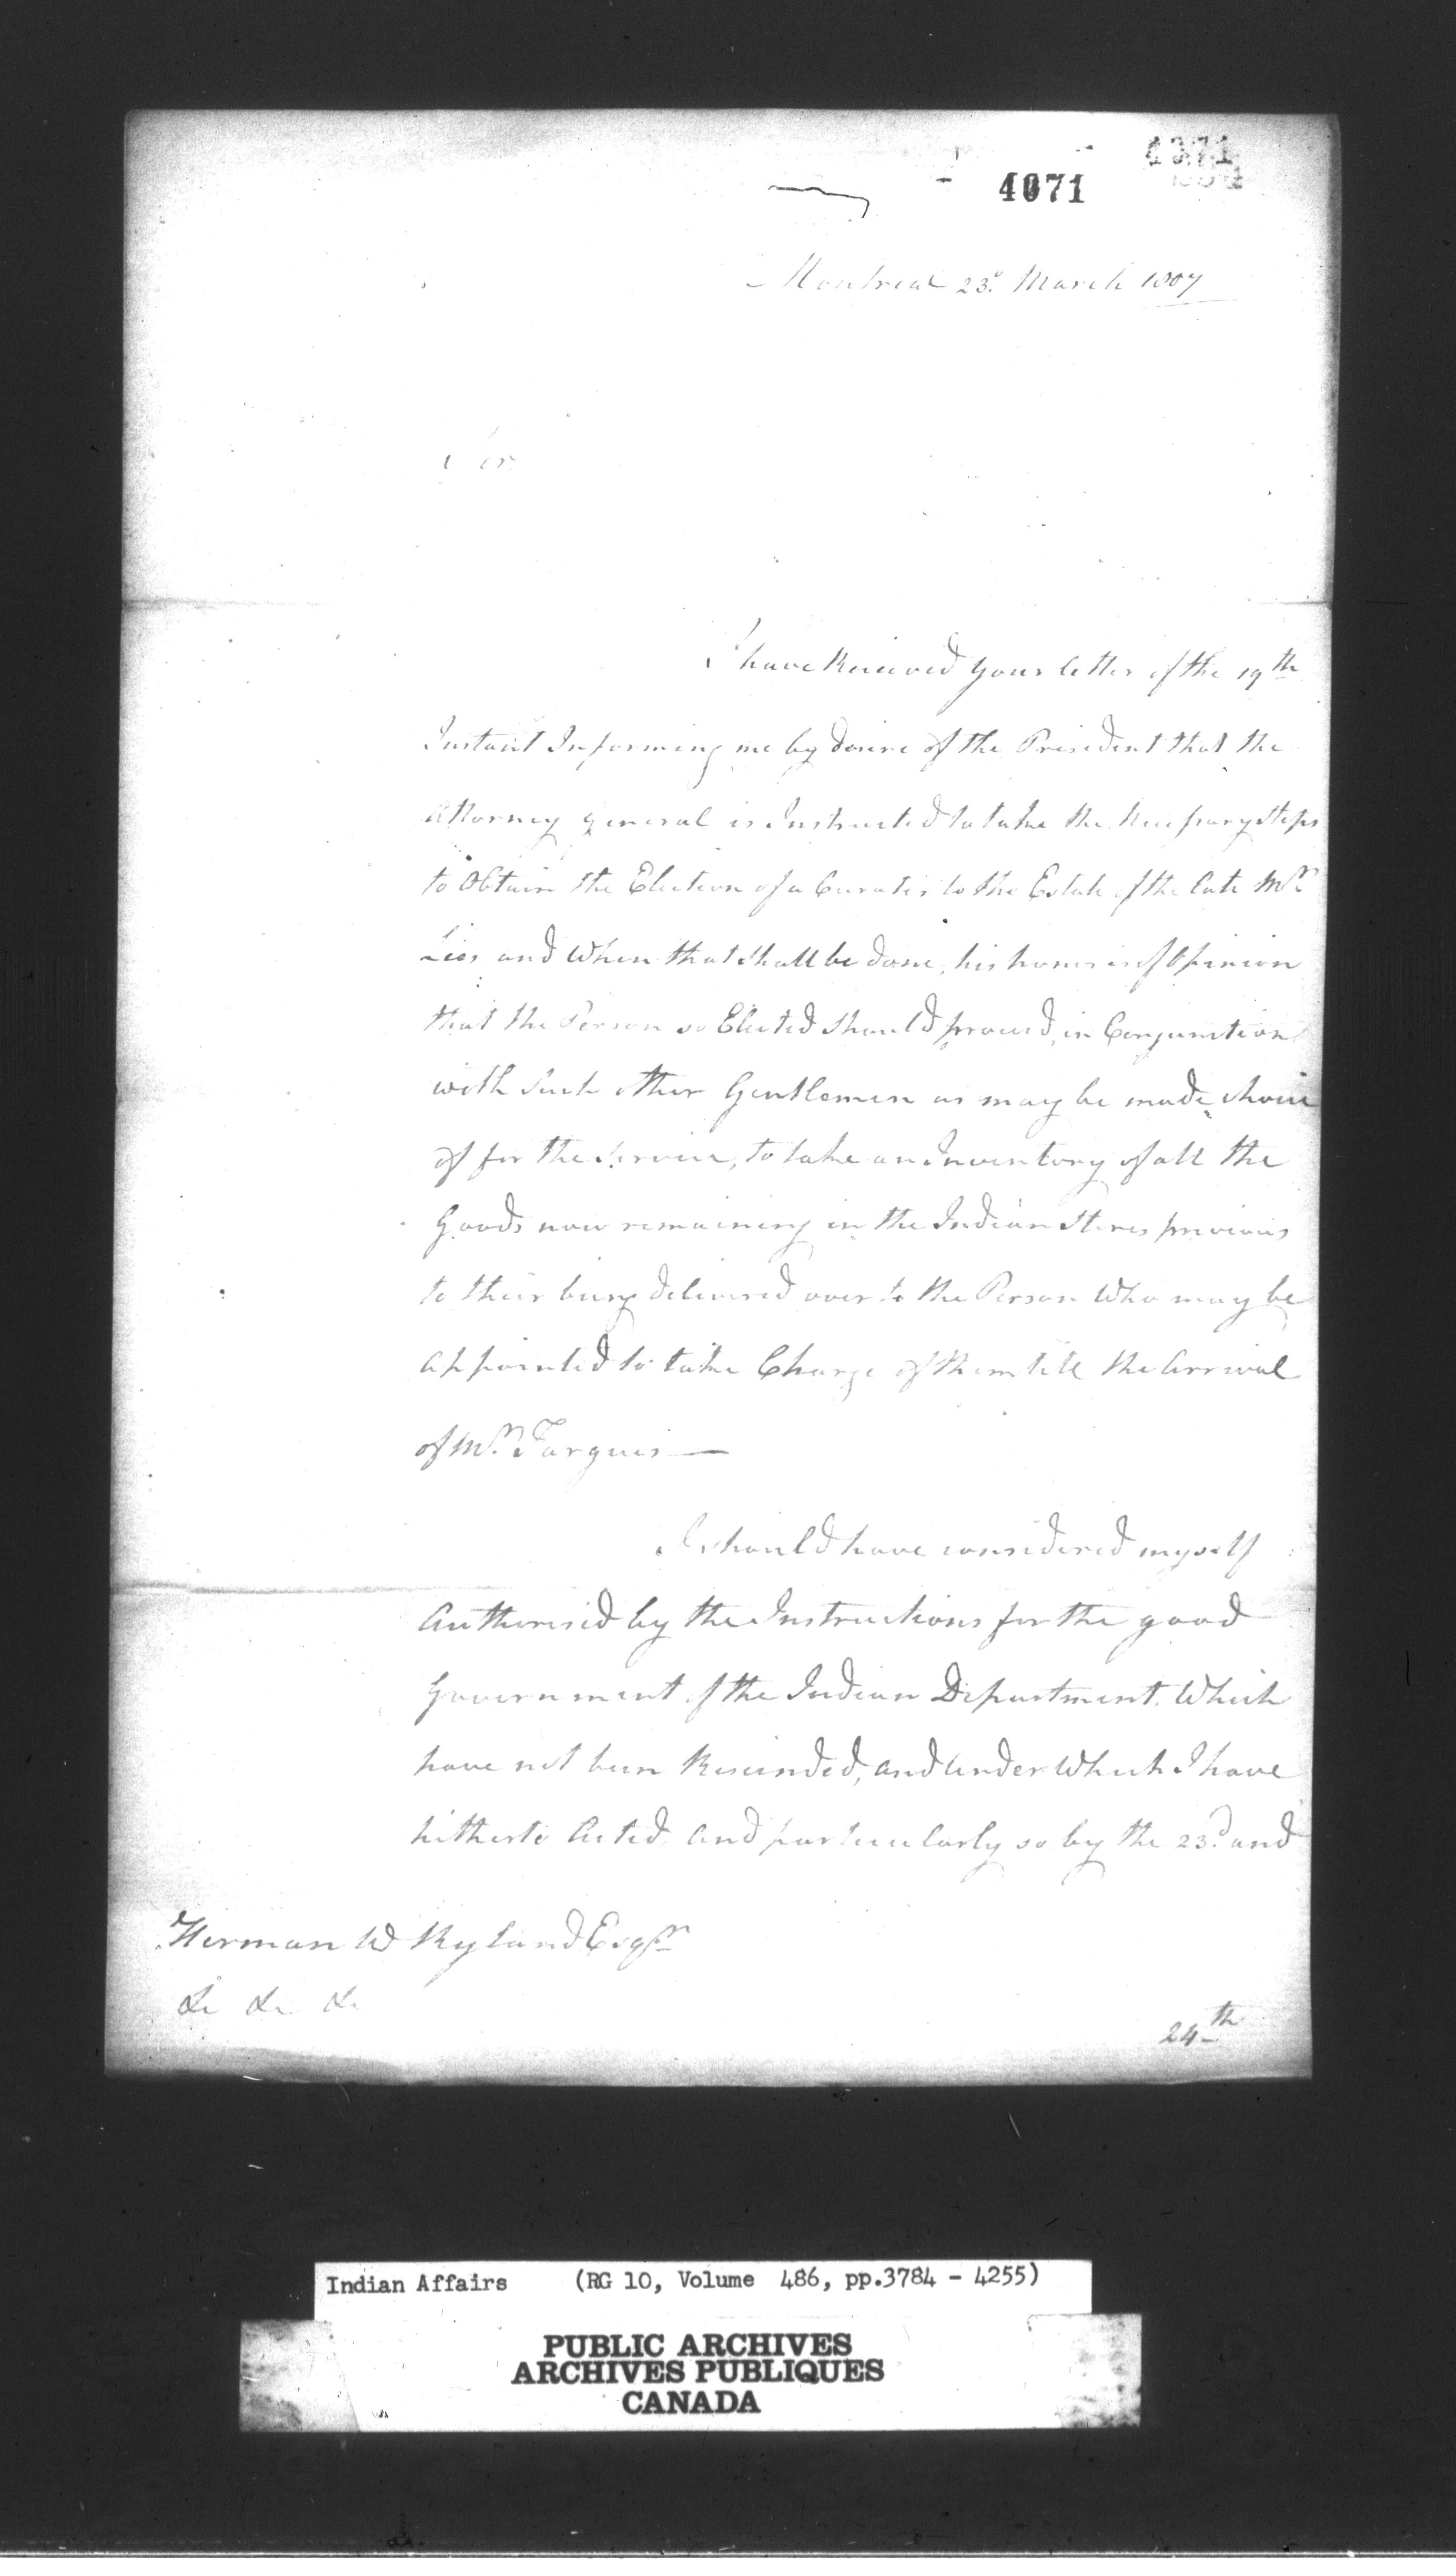 4071
4071
Montreal 23d. March 1807
Sir
I have Received your letter of the 19th
Instant Informing me by desire of the President that the
Attorney general is Instructed to take the Necessary steps
to Obtain the Election of a Curator to the Estate of the late Mr.
Lees and When that shall be done, his honor is of Opinion
that the Person so Elected should proceed, in Conjunction
with Such other Gentlemen as may be made choice
of for the Service, to take an Inventory of all the
Goods now remaining in the Indian Stores previous
to their being delivered over to the Person Who may be
appointed to take Charge of them till the Arrival
of Mr. Farquis—
I should have considered myself
Authorised by the Instructions for the good
Government of the Indian Department, Which
have not been Rescinded, and under Which I have
hitherto Acted, and particularly so by the 23d. and
Herman W Ryland Esqr.
&c &c &c
24th
Indian Affairs (RG 10, Volume 486, pp.3784 - 4255)
PUBLIC ARCHIVES
ARCHIVES PUBLIQUES
CANADA